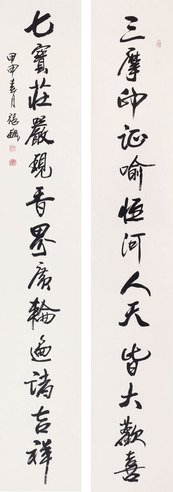 三摩印証喻恒河人天皆大歡喜
七寶莊嚴現香界廣輪遍諸吉祥
甲申春月張